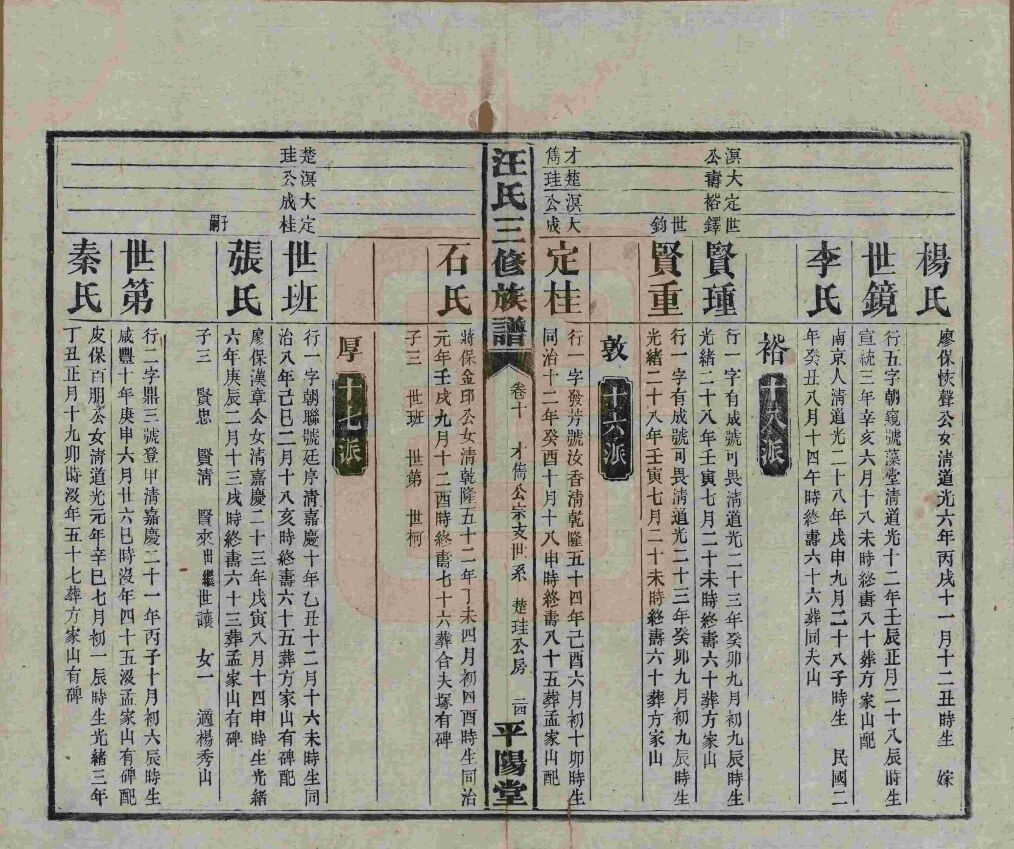 楊氏
廖保恢聲公女淸道光六年丙戌十一月十二丑時生 嫁
世鏡
行五字朝鏡號藻堂淸道光十二年壬辰正月二十八辰時生
宣統三年辛亥六月十八未時終壽八十葬方家山配
李氏
南京人淸道光二十八年戊申九月二十八子時生 民國二
年癸丑八月十四午時終壽六十六葬同夫山
裕 十八派
溟大定世
公壽裕鐸
賢瑾
行一字有成號可畏淸道光二十三年癸卯九月初九辰時生
光緒二十八年壬寅七月二十未時終壽六十葬方家山
世鈞
賢重
行一字有成號可畏淸道光二十三年癸卯九月初九辰時生
光緒二十八年壬寅七月二十未時終壽六十葬方家山
敦 十六派
才楚溟大
雋珪公成
定桂
行一字發芳號汝香淸乾隆五十四年己酉六月初十卯時生
同治十二年癸酉十月十八申時終壽八十五葬孟家山配
汪氏三修族譜
卷十 才雋公宗支世系 楚珪公房 二四
平陽堂
石氏
蔣保金邱公女淸乾隆五十二年丁未四月初四酉時生同治
元年壬戌九月十二酉時終壽七十六葬合夫塚有碑
子三 世班 世第 世柯
厚 十七派
楚溟大定
珪公成桂
世班
行一字朝聯號廷序淸嘉慶十年乙丑十二月十六未時生同
治八年己巳二月十八亥時終壽六十五葬方家山有碑配
子嗣
張氏
廖保漢章公女淸嘉慶二十三年戊寅八月十四申時生光緒
六年庚辰二月十三戌時終壽六十三葬孟家山有碑
子三 賢忠 賢淸 賢來出繼世讓 女一 適楊秀山
世第
行二字鼎三號登甲淸嘉慶二十一年丙子十月初六辰時生
咸豐十年庚申六月廿六巳時沒年四十五沒孟家山有碑配
秦氏
皮保百朋公女淸道光元年辛巳七月初一辰時生光緒三年
丁丑正月十九卯時沒年五十七葬方家山有碑